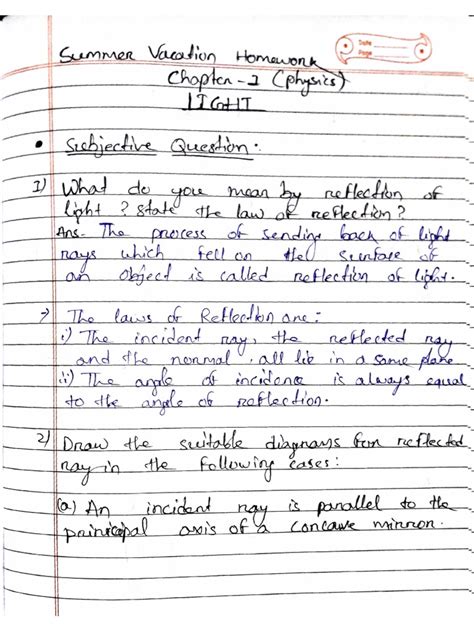 Date
Page
Summer Vacation Homework
Chapter - 1 (Physics)
LIGHT
• Subjective Question.
1) What do you mean by reflection of
light ? State the law of reflection?
Ans- The process of sending back of light
rays which fell on the surface of
an object is called reflection of light.
→ The laws of Reflection are:
i) The incident ray, the reflected ray
and the normal. all lie in a same plane
ii) The angle of incidence is always equal
to the angle of reflection.
2) Draw the suitable diagrams for reflected
ray in the following cases:
(a) An incident ray is parallel to the
prinicipal axis of a concave mirror.